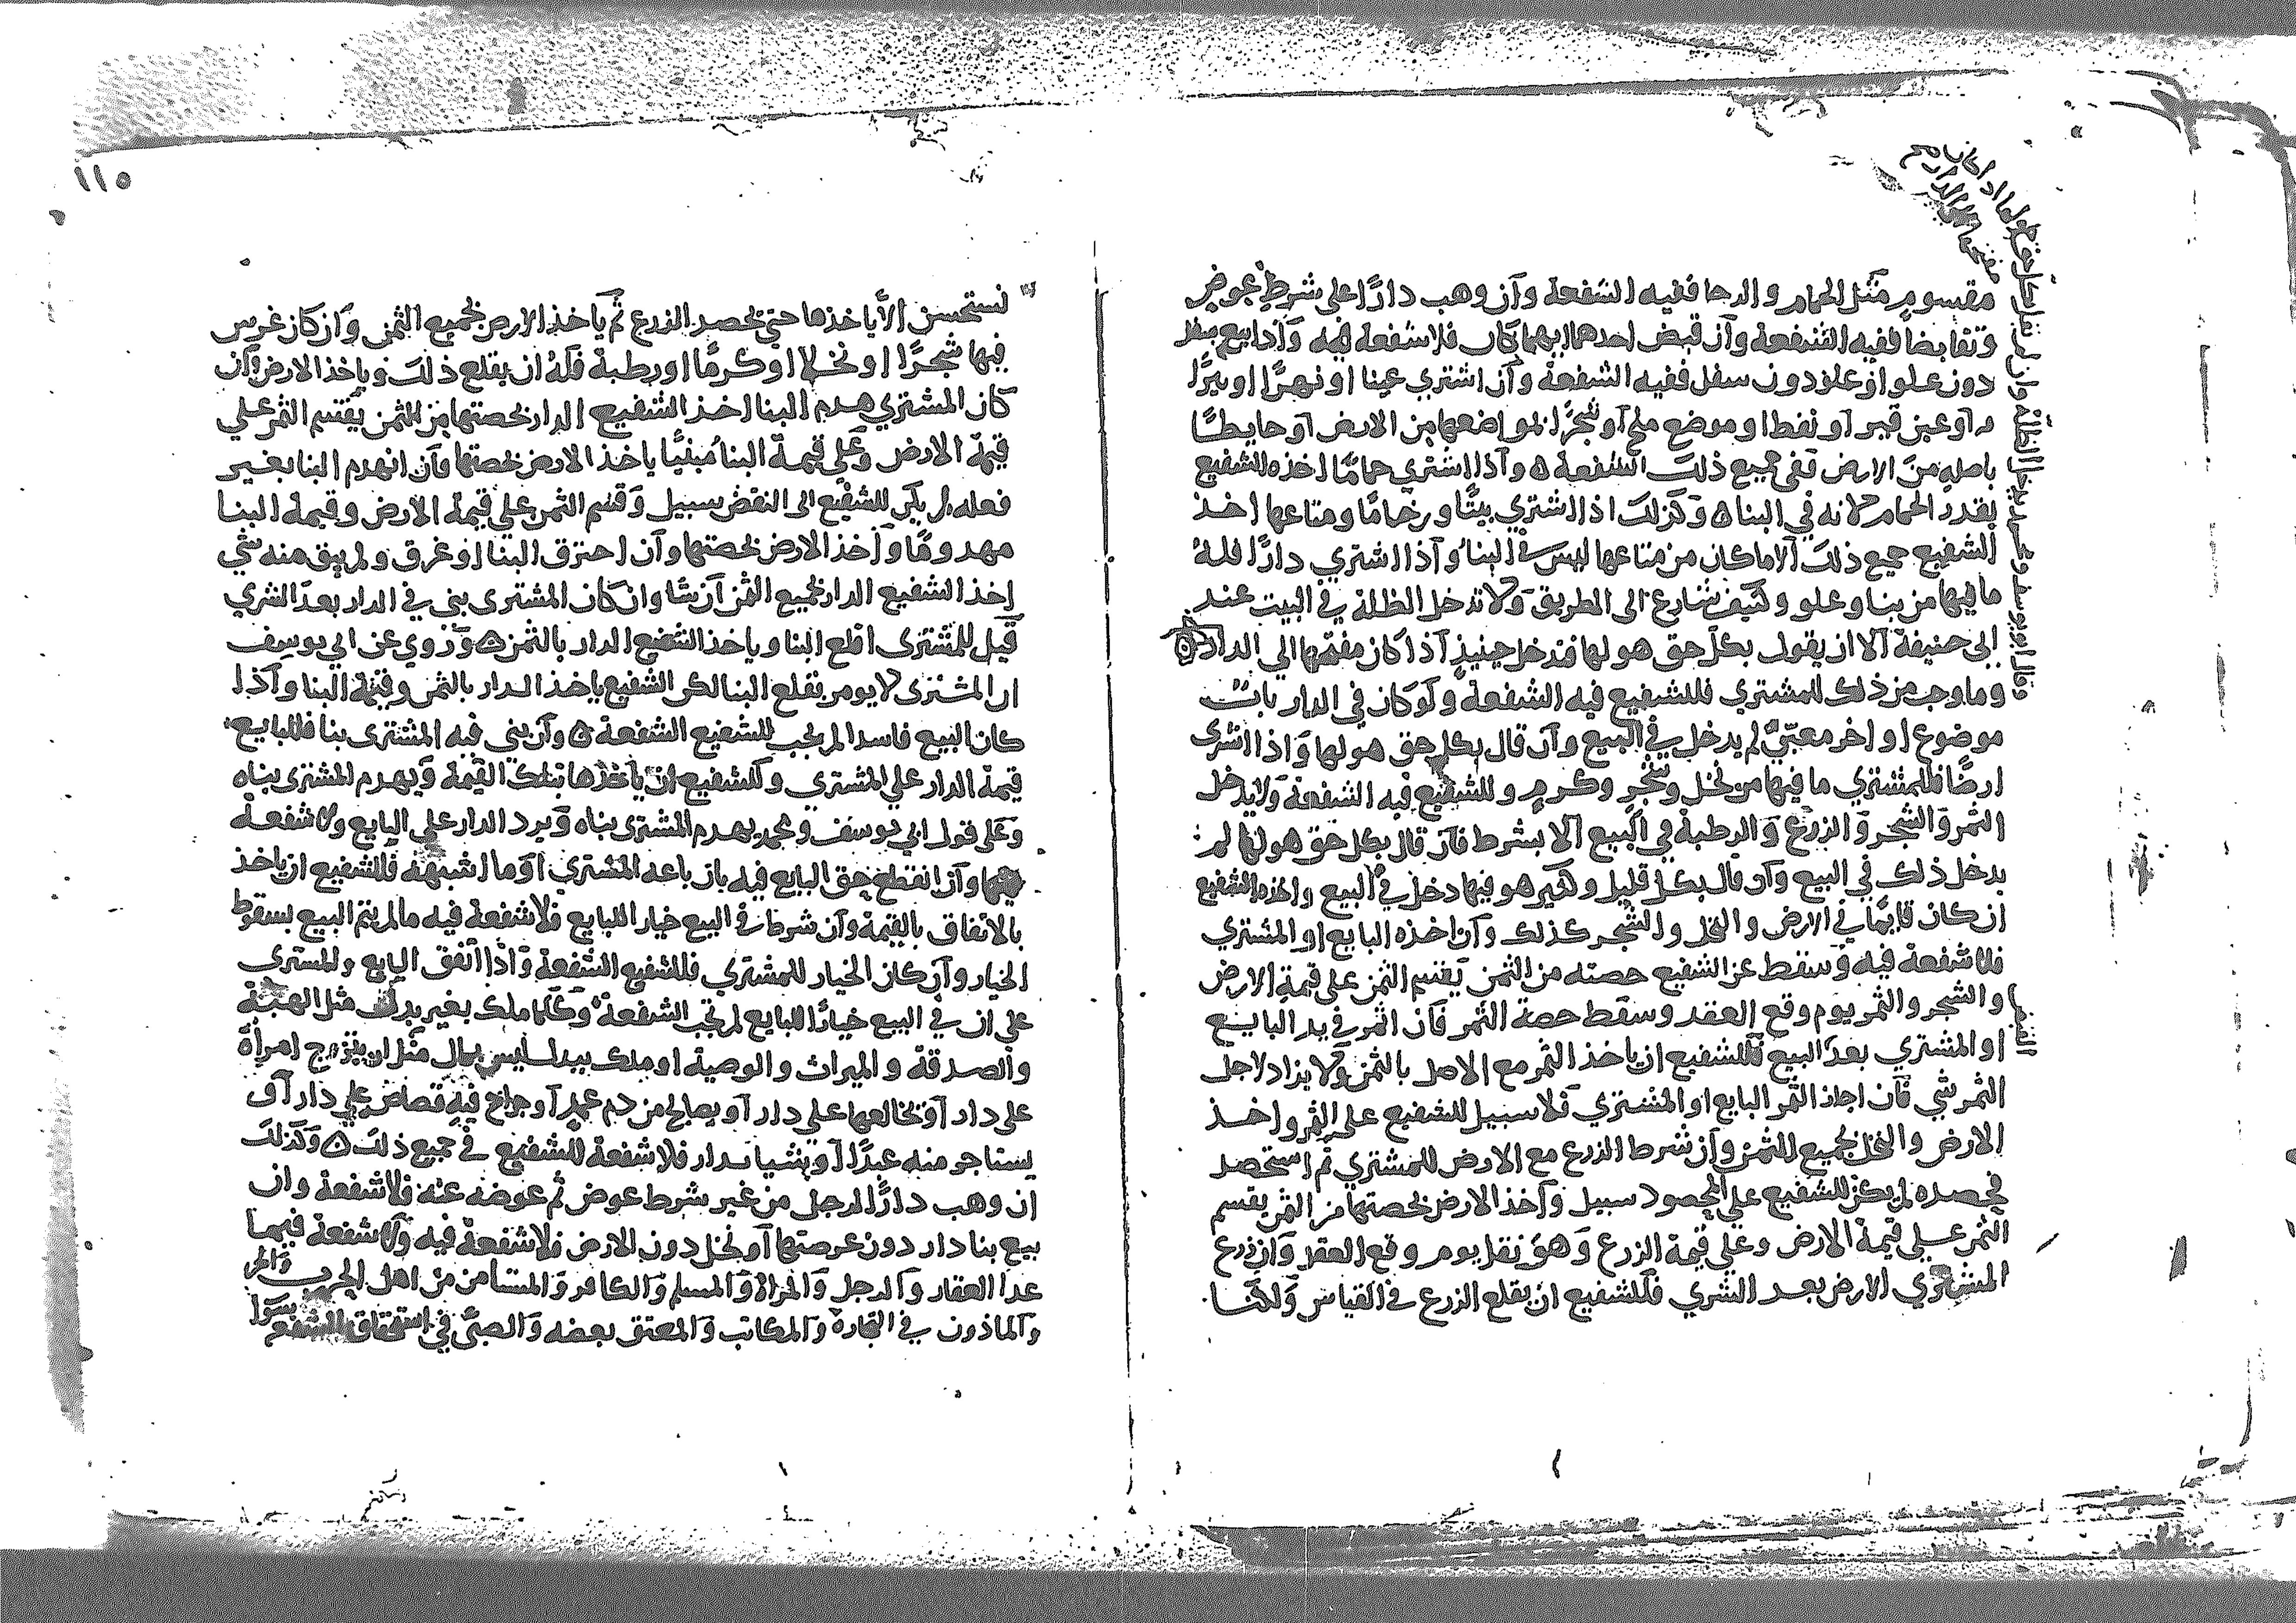 مقسوم مثل الحمام والرحا ففيه الشفعة وان وهب دارًا على شرط عوض
وتقابضا ففيه الشفعة وان قبض احدهما ايهما كان فلا شفعة فيه واذا بيع سفل
دون علو او علو دون سفل ففيه الشفعة وان اشتري عينا او نهرًا او بيرًا
او عين قير او نفط او موضع ملح او شجرًا بمواضعها من الارض او حايطًا
باصله من الارض ففي جميع ذلك الشفعة ۵ واذا اشتري حمامًا اخذه الشفيع
بقدر الحمام لانه في البنا ۵ وكذلك اذا اشتري بيتًا ورخامًا ومتاعها اخذ
الشفيع جميع ذلك الا ما كان من متاعها ليس في البنا واذا اشتري دارًا فله
ما فيها من بنا وعلو وكنيف شارع الى الطريق ولا تدخل الظلة في البيت عند
ابى حنيفة الا ان يقول بكل حق هو لها فتدخل حينيذ اذا كان مفتحها الى الدار ۵
وما وجب من ذلك للمشتري فللشفيع فيه الشفعة ولو كان في الدار باب
موضوع او اخر لم يدخل في البيع وان قال بكل حق هو لها واذا اشترى
ارضًا فللمشتري ما فيها من نخل وشجر وكرم وللشفيع فيه الشفعة ولا يدخل
الثمر والشجر والزرع والرطبة في البيع الا بشرط فان قال بكل حق هو لها لم
يدخل ذلك في البيع وان قال بكل قليل وكثير هو فيها دخل في البيع واخذه الشفيع
ان كان قايمًا في الارض والنخل والشجر كذلك وان اخذه البايع او المشتري
فلا شفعة فيه وسقط عن الشفيع حصته من الثمن يقسم الثمن على قيمة الارض
والشجر والثمر يوم وقع العقد وسقط حصة الثمر فان اثمر في يد البايع
او المشتري بعد البيع فللشفيع ان ياخذ الثمر مع الاصل بالثمن ولا يزاد لاجل
الثمر شي فان اجذ الثمر البايع او المشتري فلا سبيل للشفيع على الثمر واخذ
الارض والنخل بجميع الثمن وان شرط الزرع مع الارض للمشتري ثم استحصد
فحصده لم يكن للشفيع على المحصود سبيل واخذ الارض بحصتها من الثمن يقسم
الثمن على قيمة الارض وعلى قيمة الزرع وهو نقل يوم وقع العقد وان زرع
المشتري الارض بعد الشري فللشفيع ان يقلع الزرع في القياس ولكنا
وقال ابو يوسف ومحمد يدخل الظلة وان لم يقل بكل حق هو لها اذا كان
مفتحها الى الدار
نستحسن الا ياخذها حتي يحصد الزرع ثم ياخذ الارض بجميع الثمن وان كان غرس
فيها شجرًا او نخلا او كرمًا او رطبة فله ان يقلع ذلك وياخذ الارض وان
كان المشتري هدم البنا اخذ الشفيع الدار بحصتها من الثمن يقسم الثمن علي
قيمة الارض وعلي قيمة البنا مبنيًا ياخذ الارض بحصتها وان انهدم البنا بغير
فعله لم يكن للشفيع الى النقض سبيل وقسم الثمن علي قيمة الارض وقيمة البنا
مهدومًا واخذ الارض بحصتها وان احترق البنا او غرق ولم يبق منه شي
اخذ الشفيع الدار بجميع الثمن ان شا وان كان المشترى بنى في الدار بعد الشري
قيل للمشترى اقلع البنا وياخذ الشفيع الدار بالثمن ۵ وروي عن ابي يوسف
ان المشترى لا يومر بقلع البنا لكن الشفيع ياخذ الدار بالثمن وقيمة البنا واذا
كان البيع فاسدا لم يجب للشفيع الشفعة ۵ وان بنى فيه المشترى بنا فللبايع
قيمة الدار علي المشترى وللشفيع ان ياخذها بتلك القيمة ويهدم المشترى بناه
وعلى قول ابي يوسف ومحمد يهدم المشترى بناه ويرد الدار علي البايع ولا شفعة
فيها وان انقطع حق البايع فيه بان باعه المشتري او ما اشبهه فللشفيع ان ياخذ
بالاتفاق بالقيمة وان شرط في البيع خيار للبايع فلا شفعة فيه ما لم يتم البيع بسقوط
الخيار وان كان الخيار للمشتري فللشفيع الشفعة واذا اتفق البايع والمشترى
علي ان في البيع خيارًا للبايع لم تجب الشفعة وكلما ملك بغير بدل مثل الهبة
والصدقة والميراث والوصية او ملك ببدل ليس بمال مثل ان يتزوج امراة
على دار او يخالعها على دار او يصالح من دم عمد او جراح فيه قصاص علي دار او
يستاجر منه عبدًا او شيا بدار فلا شفعة للشفيع في جميع ذلك ۵ وكذلك
ان وهب دارًا لرجل من غير شرط عوض ثم عوضه عنه فلا شفعة وان
بيع بنا دار دون عرصتها او نخل دون الارض فلا شفعة فيه ولا شفعة فيما
عدا العقار والرجل والمراة والمسلم والكافر والمستامن من اهل الحرب والحر
والماذون في التجارة والمكاتب والمعتق بعضه والصبي في استحقاق الشفعة سوا
١١٥